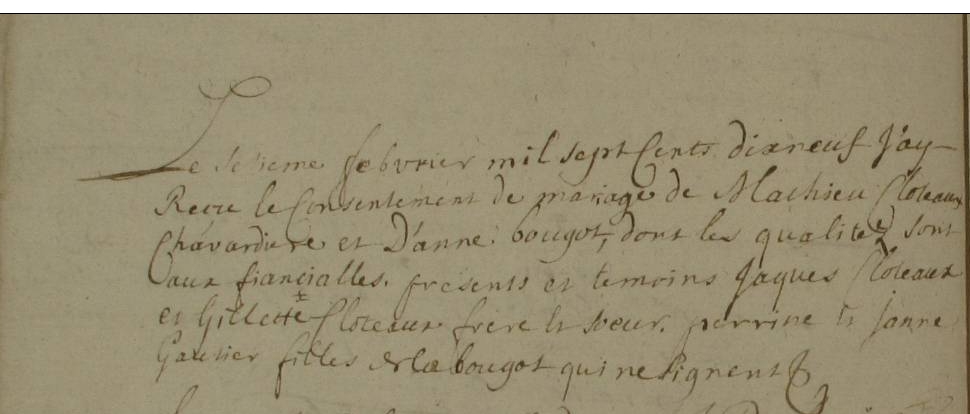 Le sesieme febvrier mil sept Cents dixneuf J'ay
Receu le Consentement de mariage de Mathieu Cloteaux
Chavardiere et D'anne bougot, dont les qualitez sont
aux fiancialles. presents et temoins Jaques Cloteaux
et Gillette Cloteaux frere et soeur. perrine et Janne
Gautier filles de la bougot qui ne signent